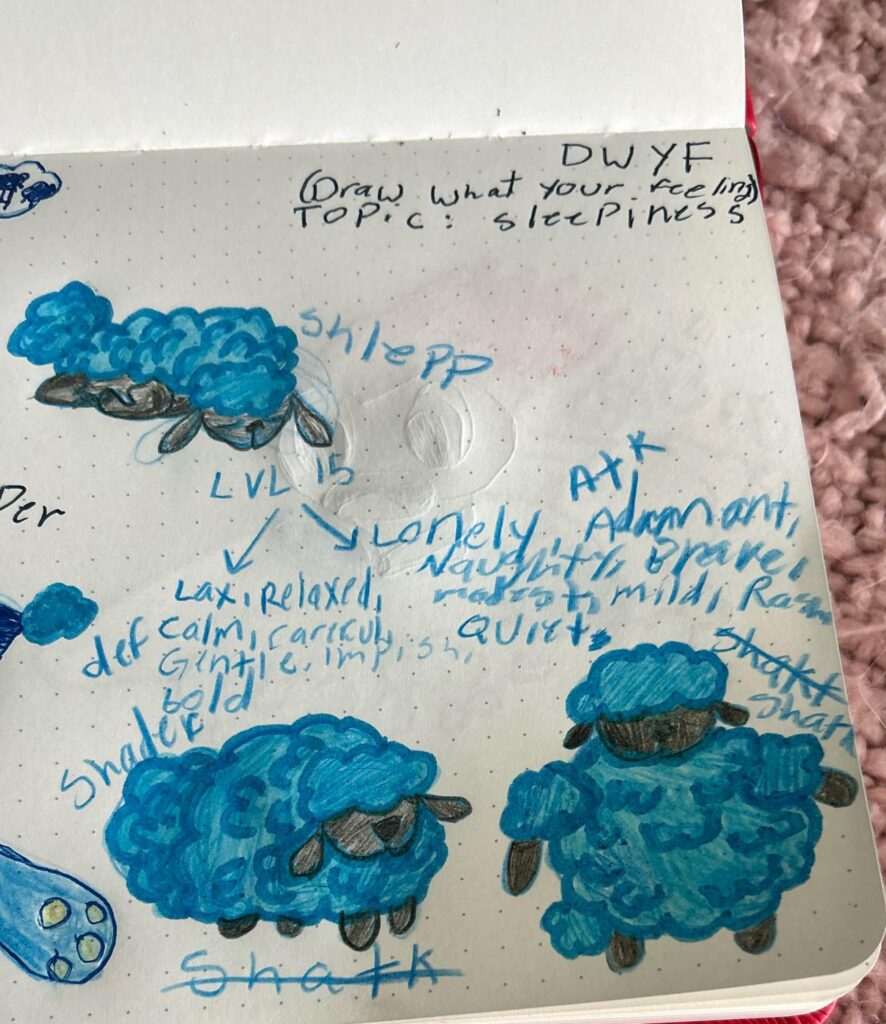 DWYF
(Draw what your feeling)
Topic: sleepiness
Shlepp
LVL 15
Per
Atk
Lonely, Adamant,
Naughty, Brave,
modest, mild, Rash
Quiet,
def
Lax, Relaxed,
calm, careful,
Gentle, impish,
bold
Shadef
Shakt
Shatk
Shatk